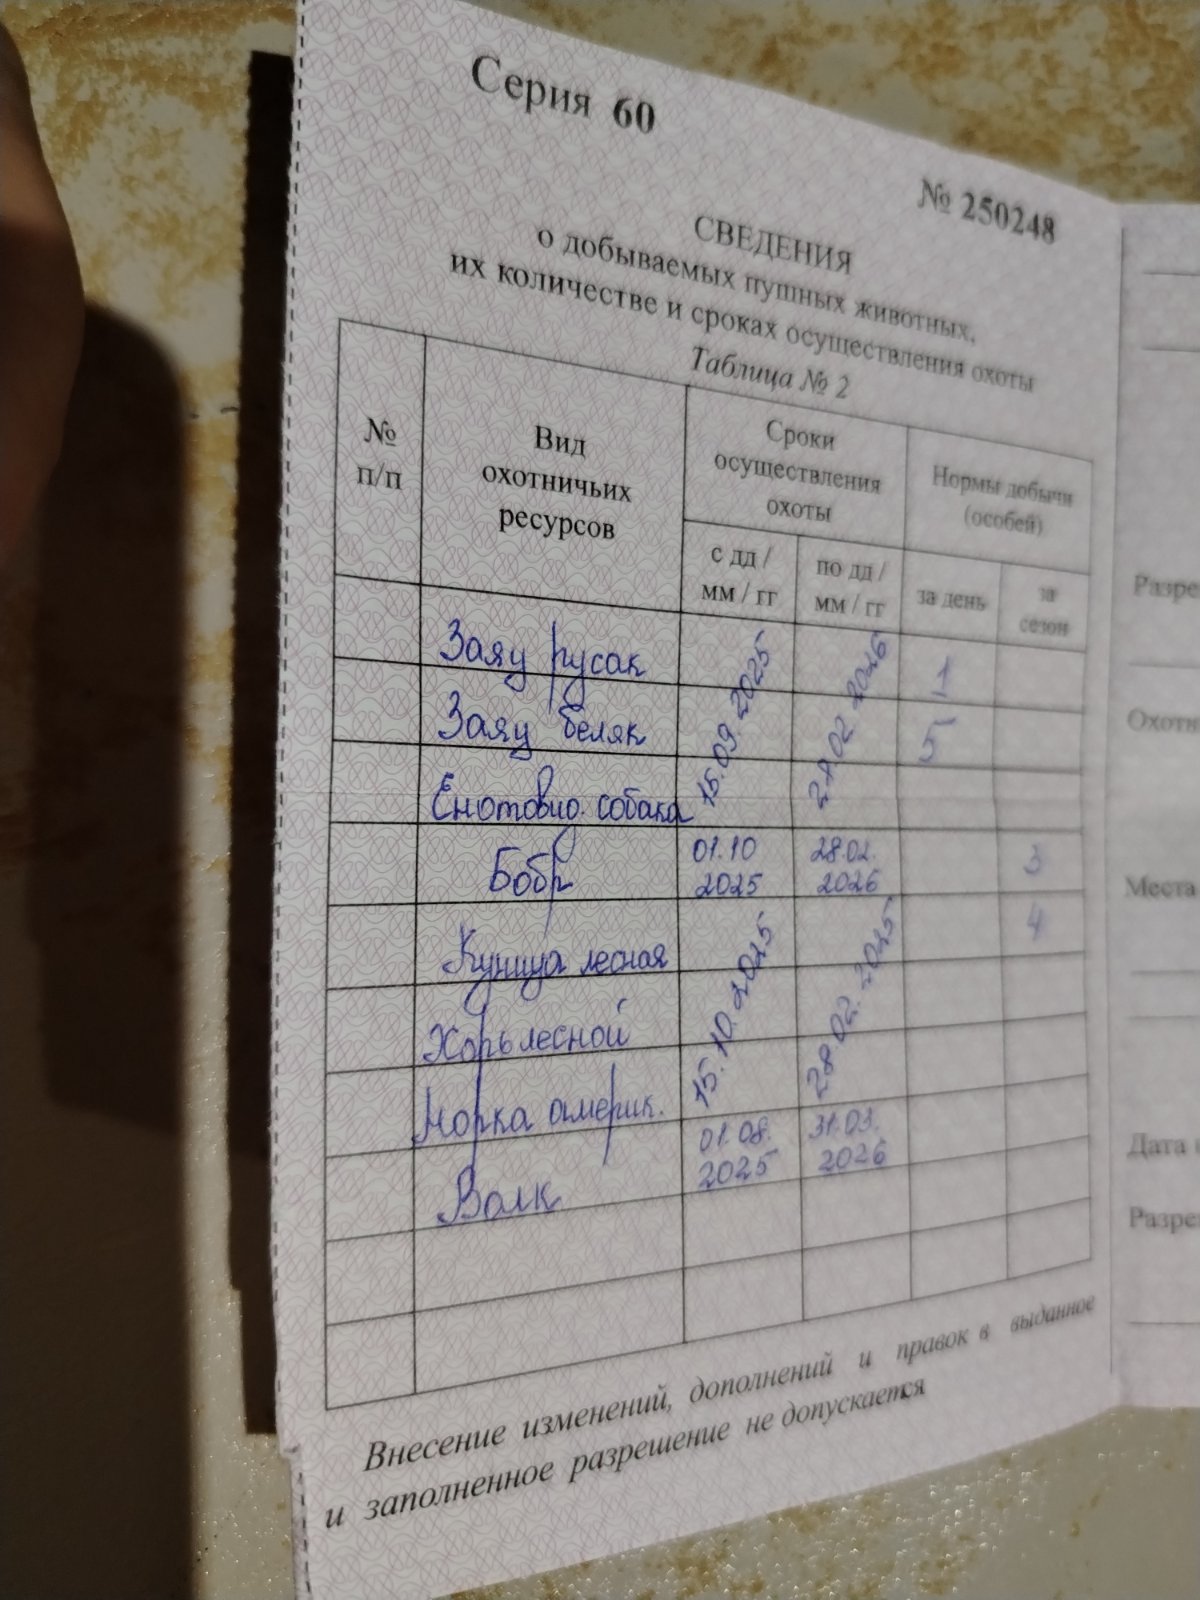 Серия 60
№ 250248
СВЕДЕНИЯ
о добываемых пушных животных,
их количестве и сроках осуществления охоты
Таблица № 2
№ п/п
Вид охотничьих ресурсов
Сроки осуществления охоты
Нормы добычи (особей)
с дд / мм / гг
по дд / мм / гг
за день
за сезон
Заяц русак 15.09.2025 28.02.2026 1
Заяц беляк 5
Енотовид. собака
Бобр 01.10 2025 28.02. 2026 3
Куница лесная 15.10.2025 28.02.2025 4
Хорь лесной
Норка америк.
Волк 01.08. 2025 31.03. 2026
Внесение изменений, дополнений и правок в выданное
и заполненное разрешение не допускается
Разре
Охотн
Места
Дата
Разре